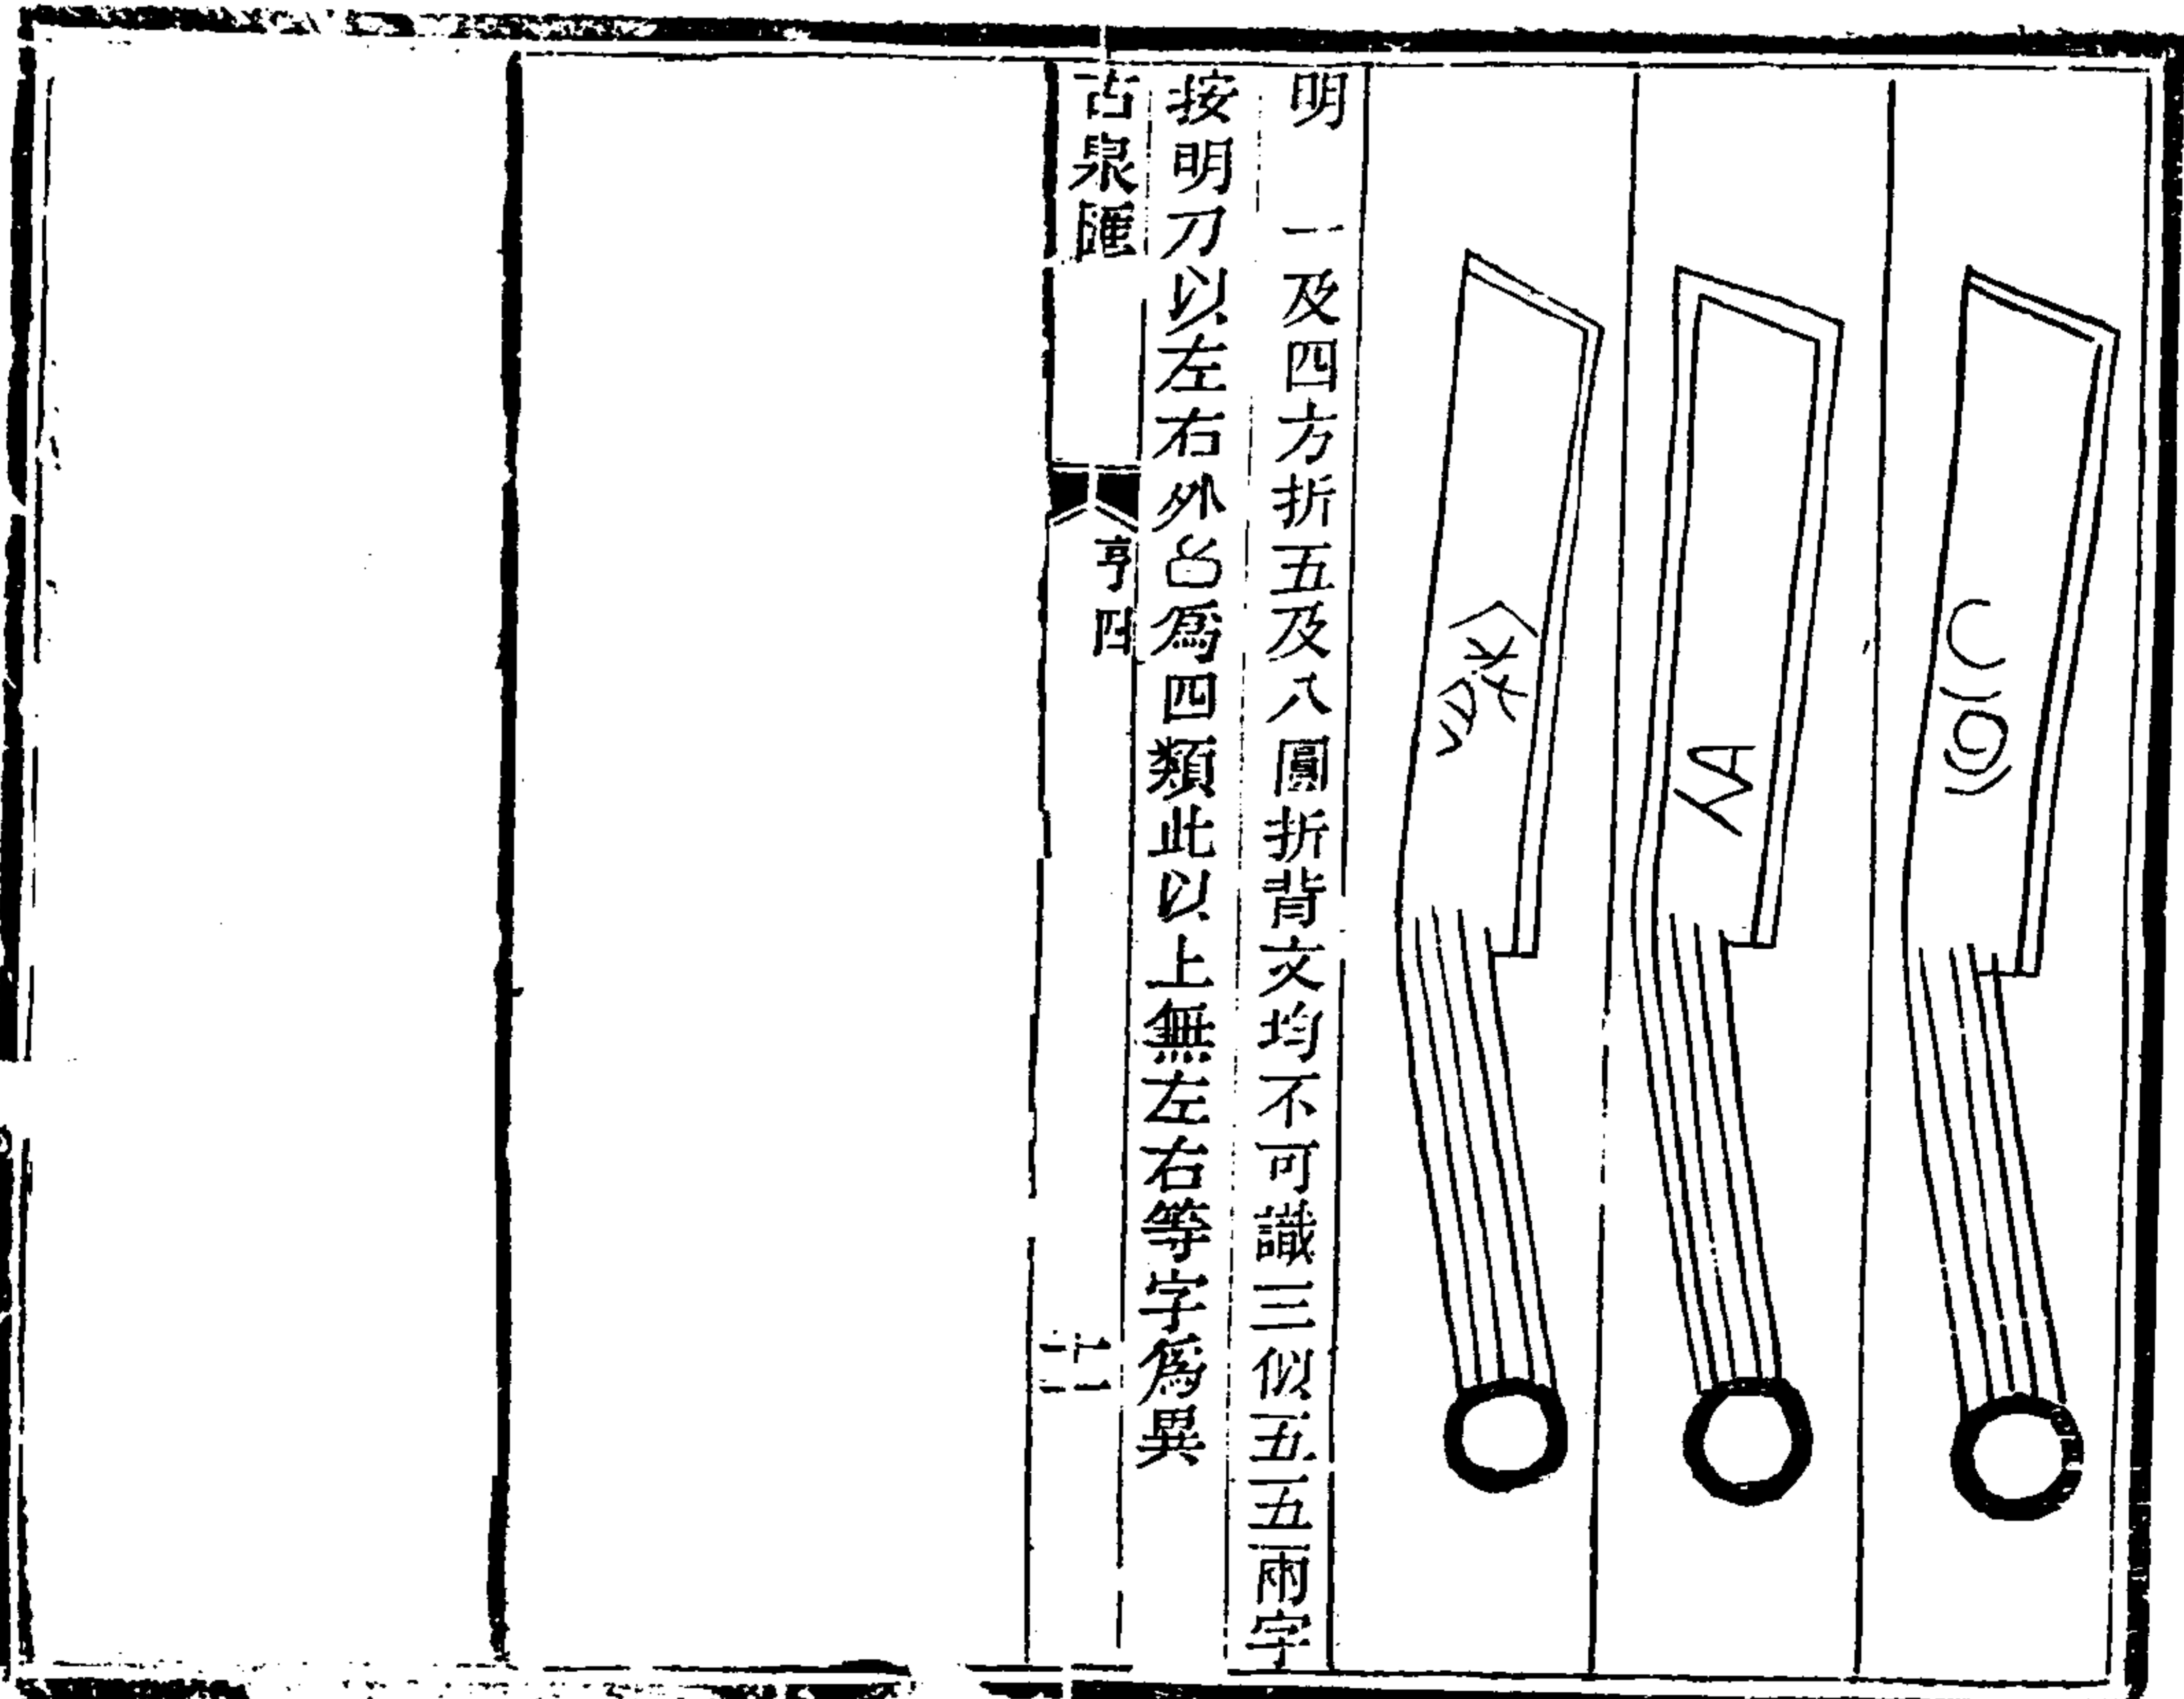 明　一及四方折五及八圓折背文均不可識三似五五兩字
按明刀以左右外㠯爲四類此以上無左右等字爲異
古泉匯
亨四